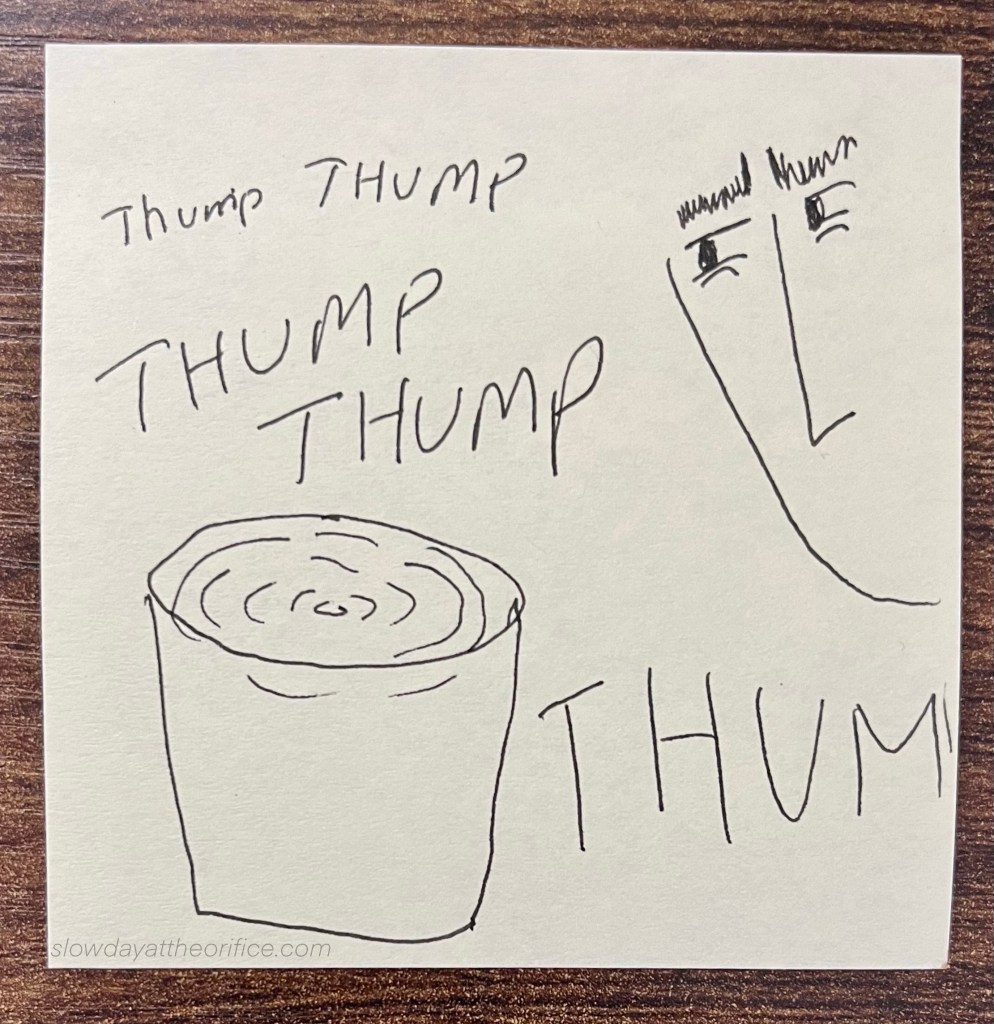 Thump THUMP
THUMP
THUMP
THUM
slowdayattheorifice.com